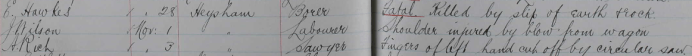 E. Hawkes " 28 Heysham Borer Fatal. Killed by slip of earth & rock.
J Wilson Nov. 1 " Labourer Shoulder injured by blow from wagon
A. Rich " 3 " Sawyer Fingers of left hand cut off by circular saw